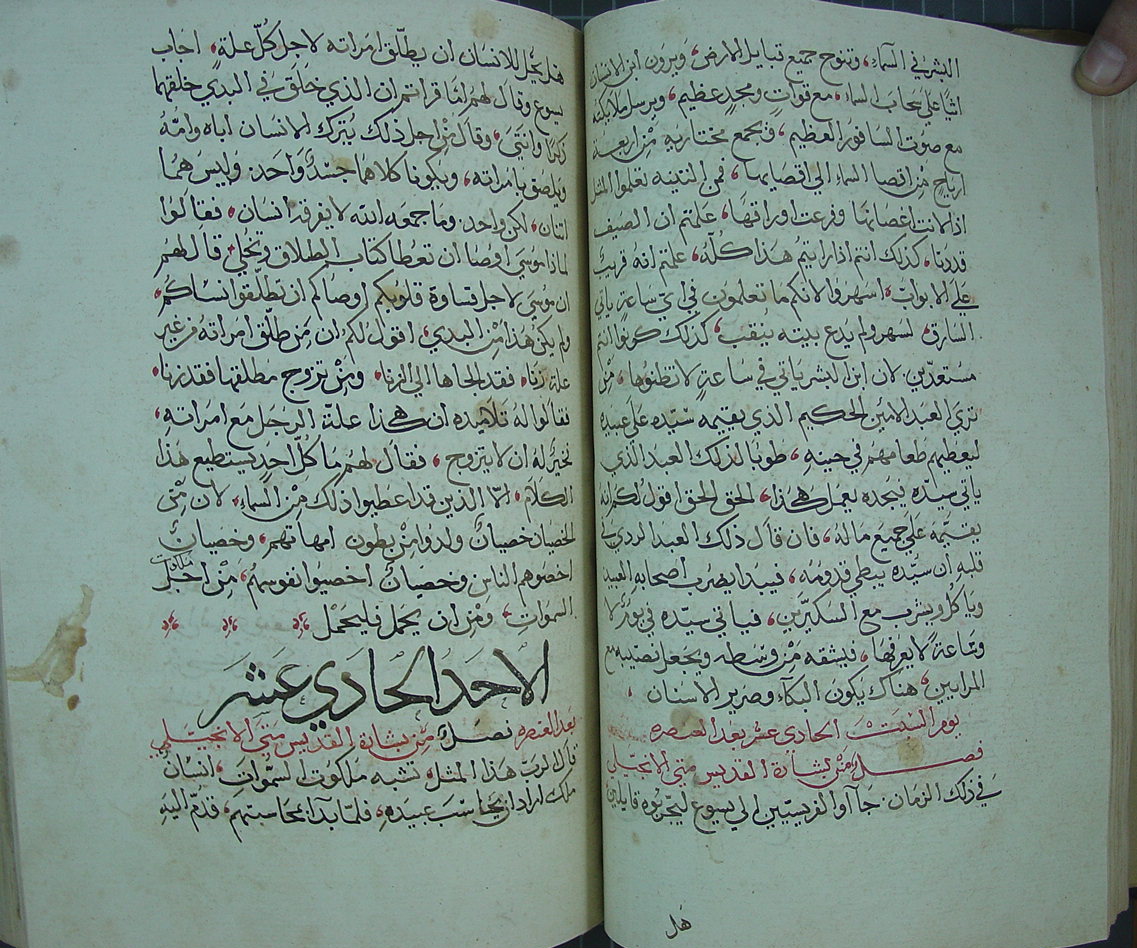 البشر في السماء، وتنوح جميع قبايل الارض، ويرون ابن الانسان
اتيًا على سحاب السماء، مع قوات ومجدٍ عظيم، ويرسل ملايكته
مع صوت السافور العظيم، فيجمع مختاريه من اربعة
ارياح من اقصا السماء الي اقصايها، فمن التينه تعلموا المثل
اذا لانت اغصانها وفرعت اوراقها، علمتم ان الصيف
قد دنا، كذلك انتم اذا رايتم هذا كلّه، علمتم انه قريب
على الابواب، اسهروا لانكم ما تعلمون في اي ساعةٍ ياتي
السارق، لسهر ولم يدع بيته ينقب، كذلك كونوا انتم
مستعدّين لان ابن البشر ياتي في ساعةٍ لا تظنوها، من
تري العبد الامين الحكيم الذي يقيمه سيّده على عبيده
ليعطيهم طعامهم في حينه، طوبا لذلك العبد الذي
ياتي سيّده فيجده يعمل هكذا، الحق الحق اقول لكم انه
يقيمه على جميع ماله، فان قال ذلك العبد الردي في
قلبه ان سيّده يبطي قدومه، فيبدا يضرب اصحابه العبيد
وياكل ويشرب مع السكيرين، فياتي سيّده في يومٍ لا
وساعة لا يعرفها، فيشقه من وسطه ويجعل نصيبه مع
المرايين، هناك يكون البكاء وصرير الاسنان
يوم السبت الحادي عشر بعد العنصره
فصل من بشارة القديس متي الانجيلي
في ذلك الزمان: جاآوا الفريسيين الي يسوع ليجربوه قايلين
هل
هل يحل للانسان ان يطلّق امراته لاجل كلّ علةٍ، اجاب
يسوع وقال لهم امّا قراتم ان الذي خلق في البدي خلقهما
ذكرًا وانثي، وقال من اجل ذلك يترك الانسان اباه وامّه
ويلصق بامراته، ويكونا كلاهما جسدٌ واحد، وليس هما
اثنان، لكن واحد، وما جمعه الله لا يفرقه انسان، فقالوا
لماذا موسي اوصا ان تعطا كتاب الطلاق وتخلي، قال لهم
ان موسي لاجل قساوة قلوبكم اوصاكم ان تطلّقوا نساكم،
ولم يكن هذا من البدي، اقول لكم ان من طلّق امراته من غير
علة زنا، فقد الجاها الي الزنا، ومن تزوج مطلقها فقد زنا،
فقالوا له تلاميذه ان هكذا علّة الرجل مع امراته،
فخير له ان لا يتزوج، فقال لهم ما كل احدٍ يستطيع هذا
الكلام، الّا الذين قد اعطيوا ذلك من السماء، لان من
الخصيان خصيان ولدوا من بطون امهاتهم، وخصيان
اخصوهم الناس وخصيان اخصيوا نفوسهم، من اجل ملكوت
السموات، ومن ان يحمل فليحمل
الاحد الحادي عشر
بعد العنصره فصل من بشارة القديس متي الانجيلي
قال الرب هذا المثل، تشبه ملكوت السموات، انسان
ملك اراد ان يحاسب عبيده، فلمّا بدا بمحاسبتهم، قدّم اليه